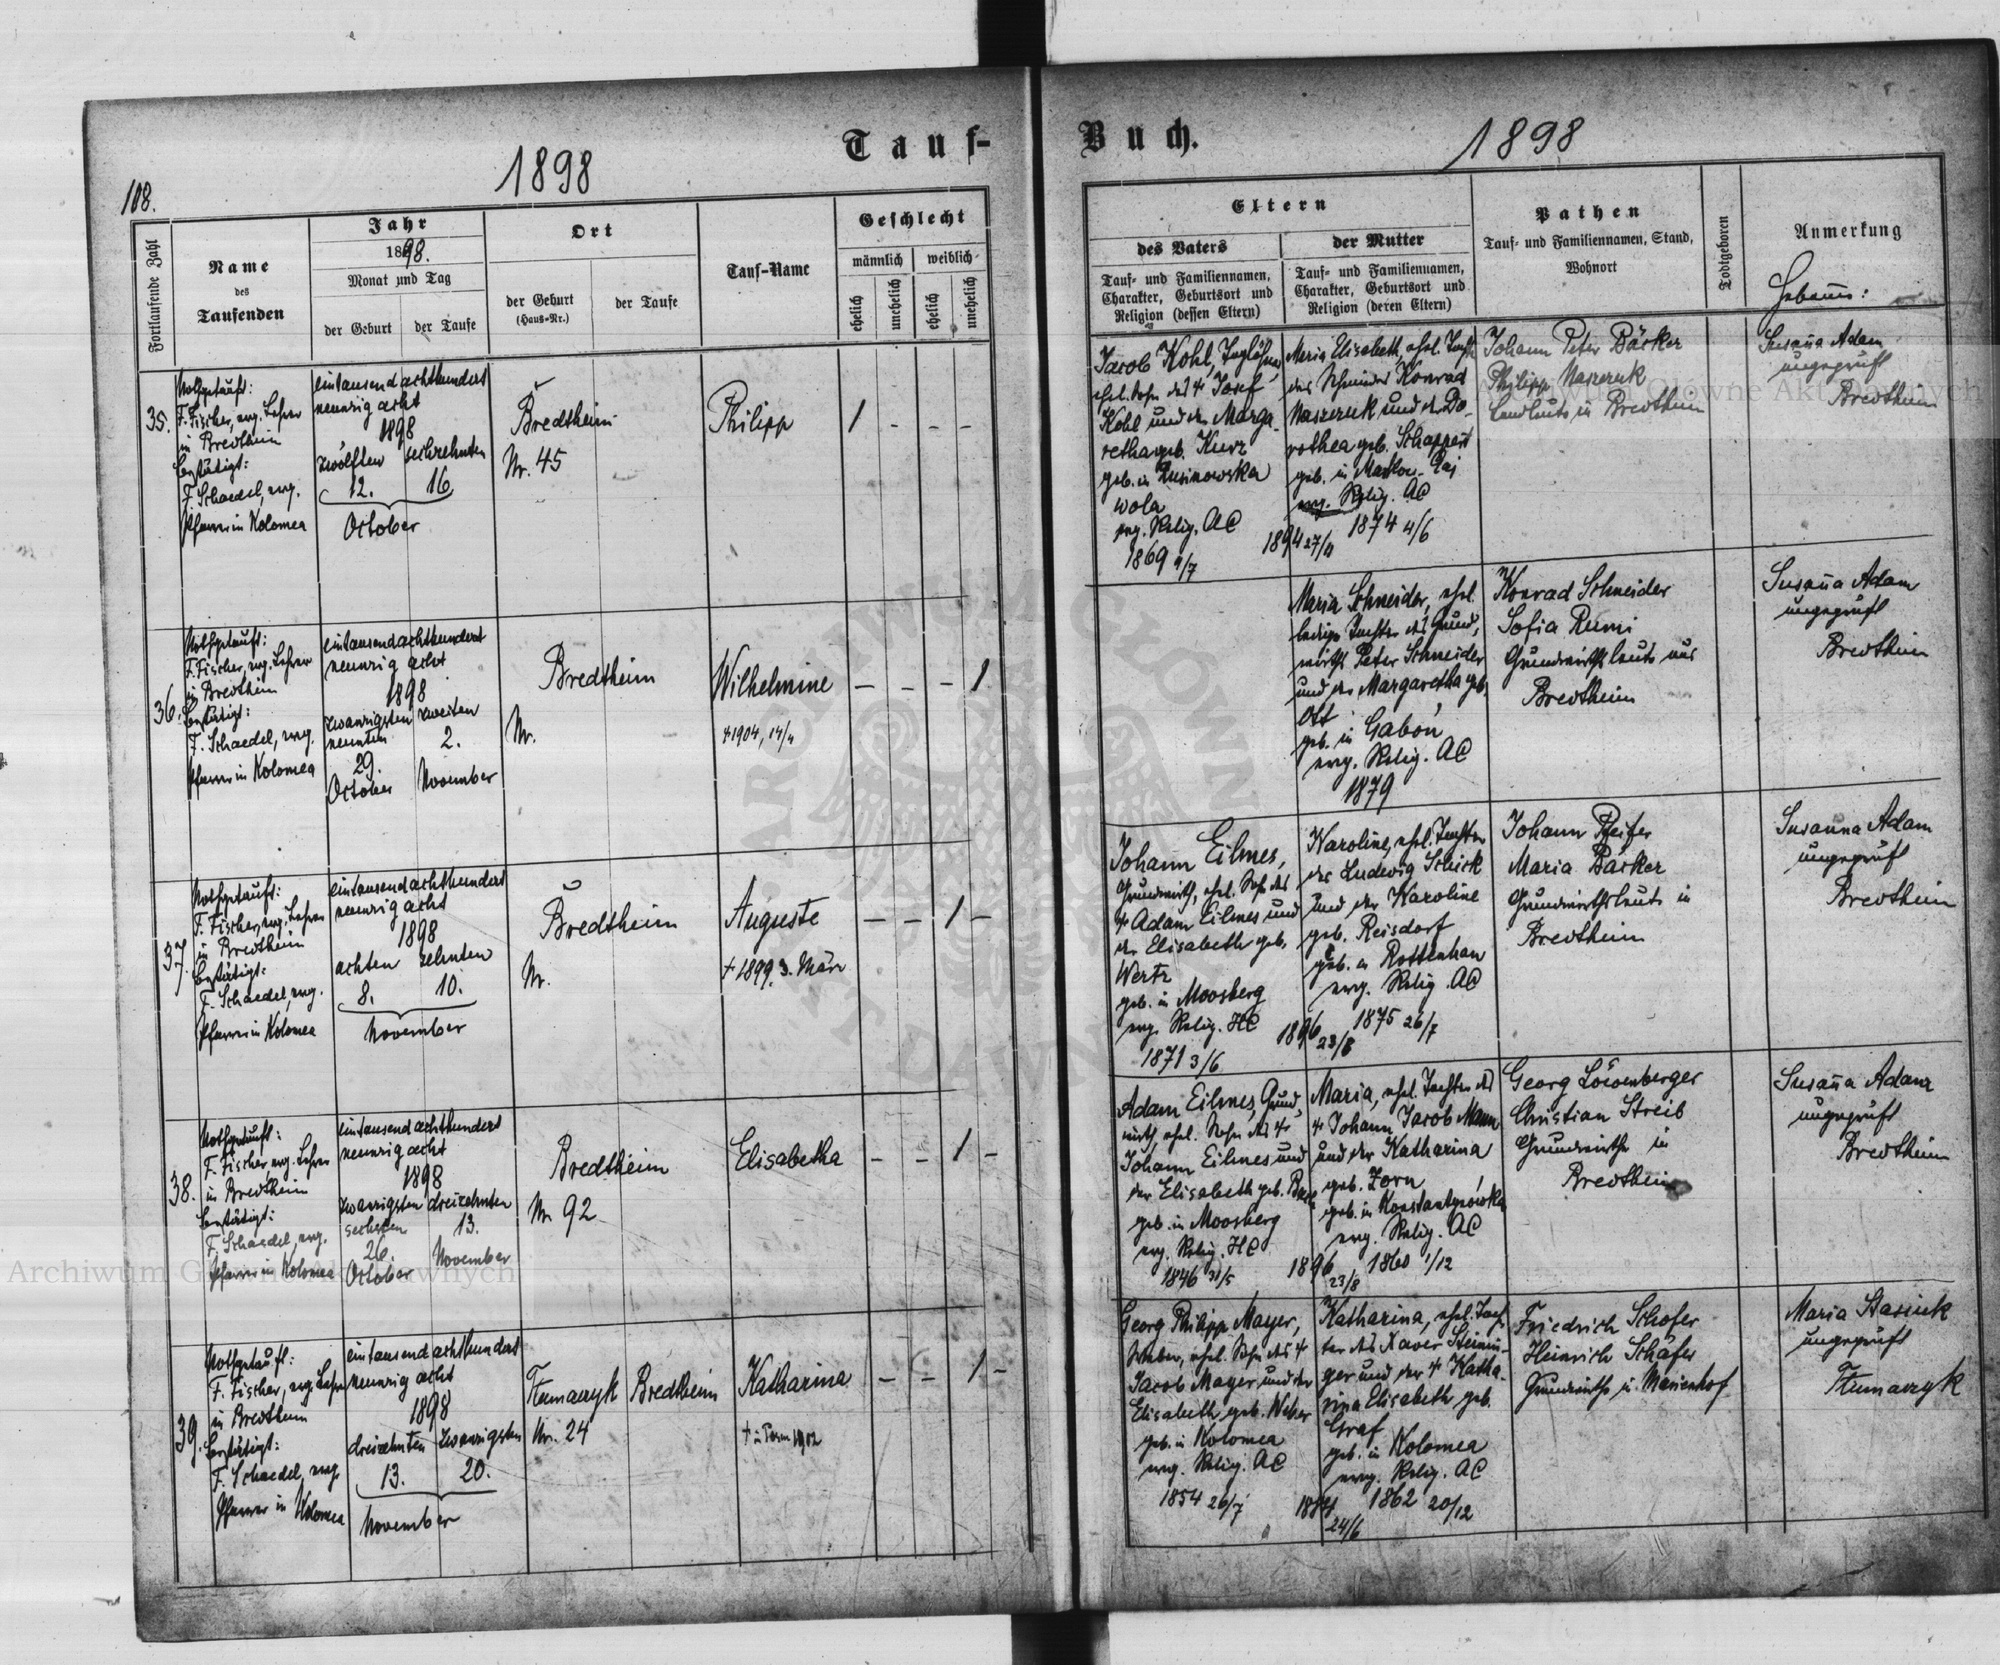 Tauf-
Buch.
1898
1898
108.
Fortlaufende Zahl
Name
des
Taufenden
Jahr
1898.
Monat und Tag
der Geburt
der Taufe
Ort
der Geburt
(Haus-Nr.)
der Taufe
Tauf-Name
Geschlecht
männlich
weiblich
ehelich
unehelich
ehelich
unehelich
Eltern
des Vaters
Tauf- und Familiennamen,
Charakter, Geburtsort und
Religion (dessen Eltern)
der Mutter
Tauf- und Familiennamen,
Charakter, Geburtsort und
Religion (deren Eltern)
Pathen
Tauf- und Familiennamen, Stand,
Wohnort
Todtgeboren
Anmerkung
Hebamme:
35.
Nothgetauft:
F. Fischer, evg. Lehrer
in Bredtheim
bestätigt:
F. Schaedel, evg.
Pfarrer in Kolomea
eintausendachthundert
neunzig acht
1898
zwölften sechzehnten
12. 16
October
Bredtheim
Nr. 45
Philipp
1 - - -
Jacob Kohl, Taglöhner
ehel. Sohn des † Josef
Kohl und der Marga-
retha geb. Kurz
geb. in Rusinowska
wola
evg. Relig. AC
1869 4/7
1894 27/11
Maria Elisabeth, ehel. Tochter
des Konrad
Naszeruk und der Do-
rothea geb. Schappert
geb. in
evg. Relig. AC
1874 4/6
Johann Peter Bäcker
Philipp Naszeruk
Landleute in Bredtheim
Susanna Adam
ungeprüft
Bredtheim
36.
Nothgetauft:
F. Fischer, evg. Lehrer
in Bredtheim
bestätigt:
F. Schaedel, evg.
Pfarrer in Kolomea
eintausendachthundert
neunzig acht
1898
zwanzigsten zweiten
neunten 2.
29.
October November
Bredtheim
Nr.
Wilhelmine
† 1904, 14/4
- - - 1
Maria Schneider, ehel.
ledige Tochter des Grund-
wirths Peter Schneider
und der Margaretha geb.
Ott
geb. in Gabon
evg. Relig. AC
1879
Konrad Schneider
Sofia Rumi
Grundwirthsleute aus
Bredtheim
Susanna Adam
ungeprüft
Bredtheim
37.
Nothgetauft:
F. Fischer, evg. Lehrer
in Bredtheim
bestätigt:
F. Schaedel, evg.
Pfarrer in Kolomea
eintausendachthundert
neunzig acht
1898
achten zehnten
8. 10.
November
Bredtheim
Nr.
Auguste
† 1899 3. März
- - 1 -
Johann Eilmes,
Grundwirth, ehel. Sohn des
† Adam Eilmes und
der Elisabeth geb.
Wertz
geb. in Moosberg
evg. Relig. HC
1871 3/6
1896 23/8
Karoline, ehel. Tochter
des Ludwig Schick
und der Karoline
geb. Reisdorf
geb. in Rottenhan
evg. Relig. AC
1875 26/7
Johann Pfeifer
Maria Bäcker
Grundwirthsleute in
Bredtheim
Susanna Adam
ungeprüft
Bredtheim
38.
Nothgetauft:
F. Fischer, evg. Lehrer
in Bredtheim
bestätigt:
F. Schaedel, evg.
Pfarrer in Kolomea
eintausendachthundert
neunzig acht
1898
zwanzigsten dreizehnten
sechsten 13.
26.
October November
Bredtheim
Nr 92
Elisabetha
- - 1 -
Adam Eilmes, Grund-
wirth, ehel. Sohn des †
Johann Eilmes und
der Elisabeth geb.
geb. in Moosberg
evg. Relig. HC
1846 31/5
1896 23/8
Maria, ehel. Tochter des
† Johann Jacob Mann
und der Katharina
geb. Zorn
geb. in Konstantynówka
evg. Relig. AC
1860 1/12
Georg Löwenberger
Christian Streib
Grundwirthe in
Bredtheim
Susanna Adam
ungeprüft
Bredtheim
39.
Nothgetauft:
F. Fischer, evg. Lehrer
in Bredtheim
bestätigt:
F. Schaedel, evg.
Pfarrer in Kolomea
eintausendachthundert
neunzig acht
1898
dreizehnten zwanzigsten
13. 20.
November
Tłumaczyk
Nr. 24
Bredtheim
Katharina
- - 1 -
Georg Philipp Mayer,
Weber, ehel. Sohn des †
Jacob Mayer und der
Elisabeth geb. Weber
geb. in Kolomea
evg. Relig. AC
1854 26/7
24/6
Katharina, ehel. Toch-
ter des Xaver Steinin-
ger und der † Katha-
rina Elisabeth geb.
Graf
geb. in Kolomea
evg. Relig. AC
1862 20/12
Friedrich Schäfer
Heinrich Schäfer
Grundwirthe in Marienhof
Maria Stasiuk
ungeprüft
Tłumaczyk
Archiwum Główne Akt Dawnych
Archiwum Główne Akt Dawnych
ARCHIWUM GŁÓWNE AKT DAWNYCH